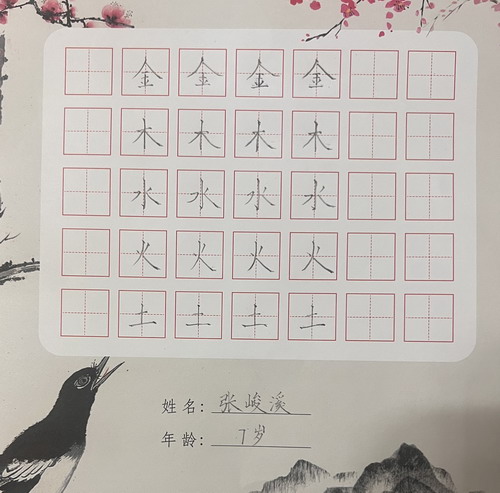 金 金 金 金
木 木 木 木
水 水 水 水
火 火 火 火
土 土 土 土
姓名: 张峻溪
年龄: 7岁